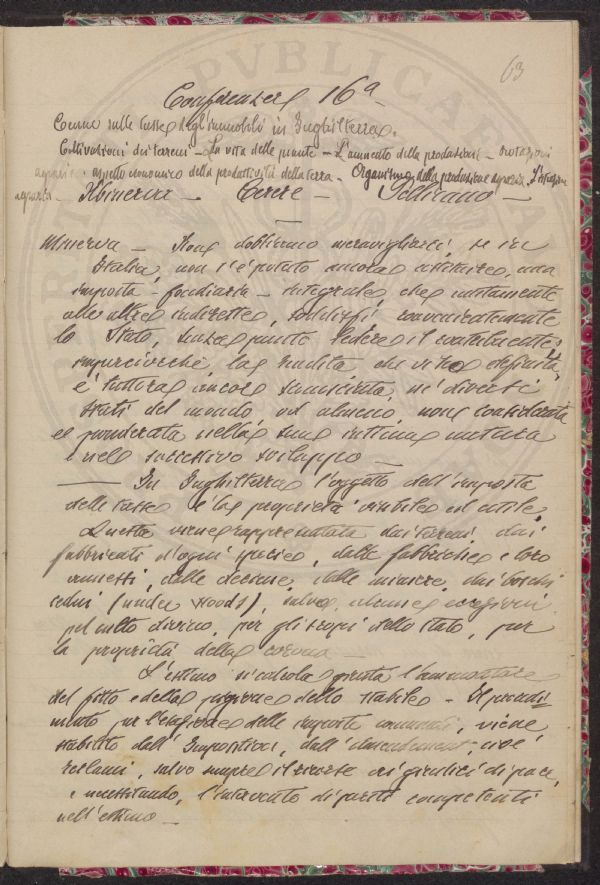 63
Conferenza 16a
Cenno sulle tasse degl'immobili in Inghilterra.
Coltivazioni dei terreni - La vita delle piante - L'aumento della produzione - Rotazioni
agrarie - aspetto economico della produttività della terra - Organismo della produzione agraria. L'
agraria - Minerva - Cerere - Silvano -
Minerva - Non dobbiamo meravigliarci, se in
Italia, non s'è potuto ancora costituire, una
imposta - fondiaria - integrale, che unitamente
alle altre indirette, soddisfi convenientemente
lo Stato, senza punto ledere il contribuente;
imperciocchè, la rendita che vien definita,
è tuttora ancora sconosciuta, ne' diversi
stati del mondo od almeno non considerata
e ponderata nella sua intima natura
e nel successivo sviluppo -
In Inghilterra l'oggetto dell'imposta
delle tasse è la proprietà visibile ed utile.
Questa viene rappresentata dai terreni, dai
fabbricati d'ogni specie, dalle fabbriche e loro
annessi, dalle decime, dalle miniere, dai boschi
cedui (under woods), salvo alcune eccezioni
pel culto divino, per gli scopi dello Stato, per
la proprietà della corona -
L'estimo si calcola giusta l'ammontare
del fitto e della pigione dello stabile - Il procedi
mento per l'esazione delle imposte comunali, viene
stabilito dall' dall' cioè
reclami, salvo sempre il ricorso ai giudici di pace,
e necessitando, l'intervento di periti competenti
nell'estimo -